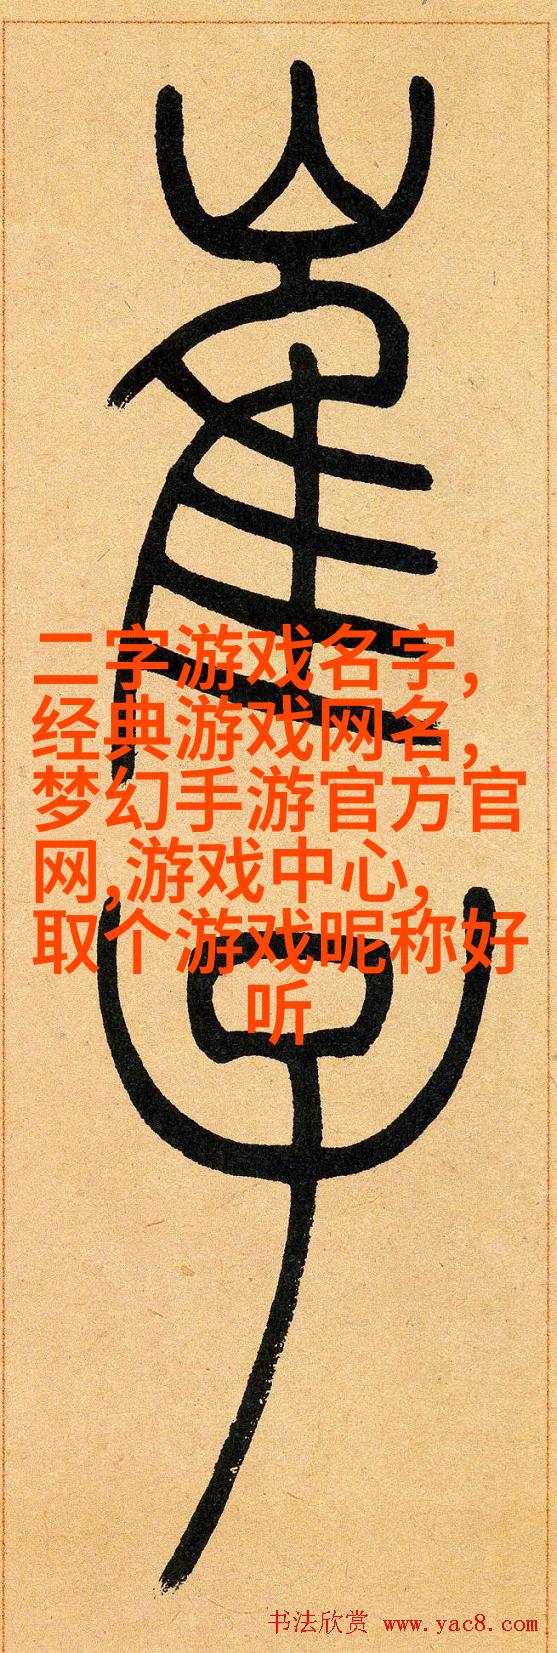 崔
子
二字游戏名字,
经典游戏网名,
梦幻手游官方官
网,游戏中心,
取个游戏昵称好
听
书法欣赏 www.yac8.com